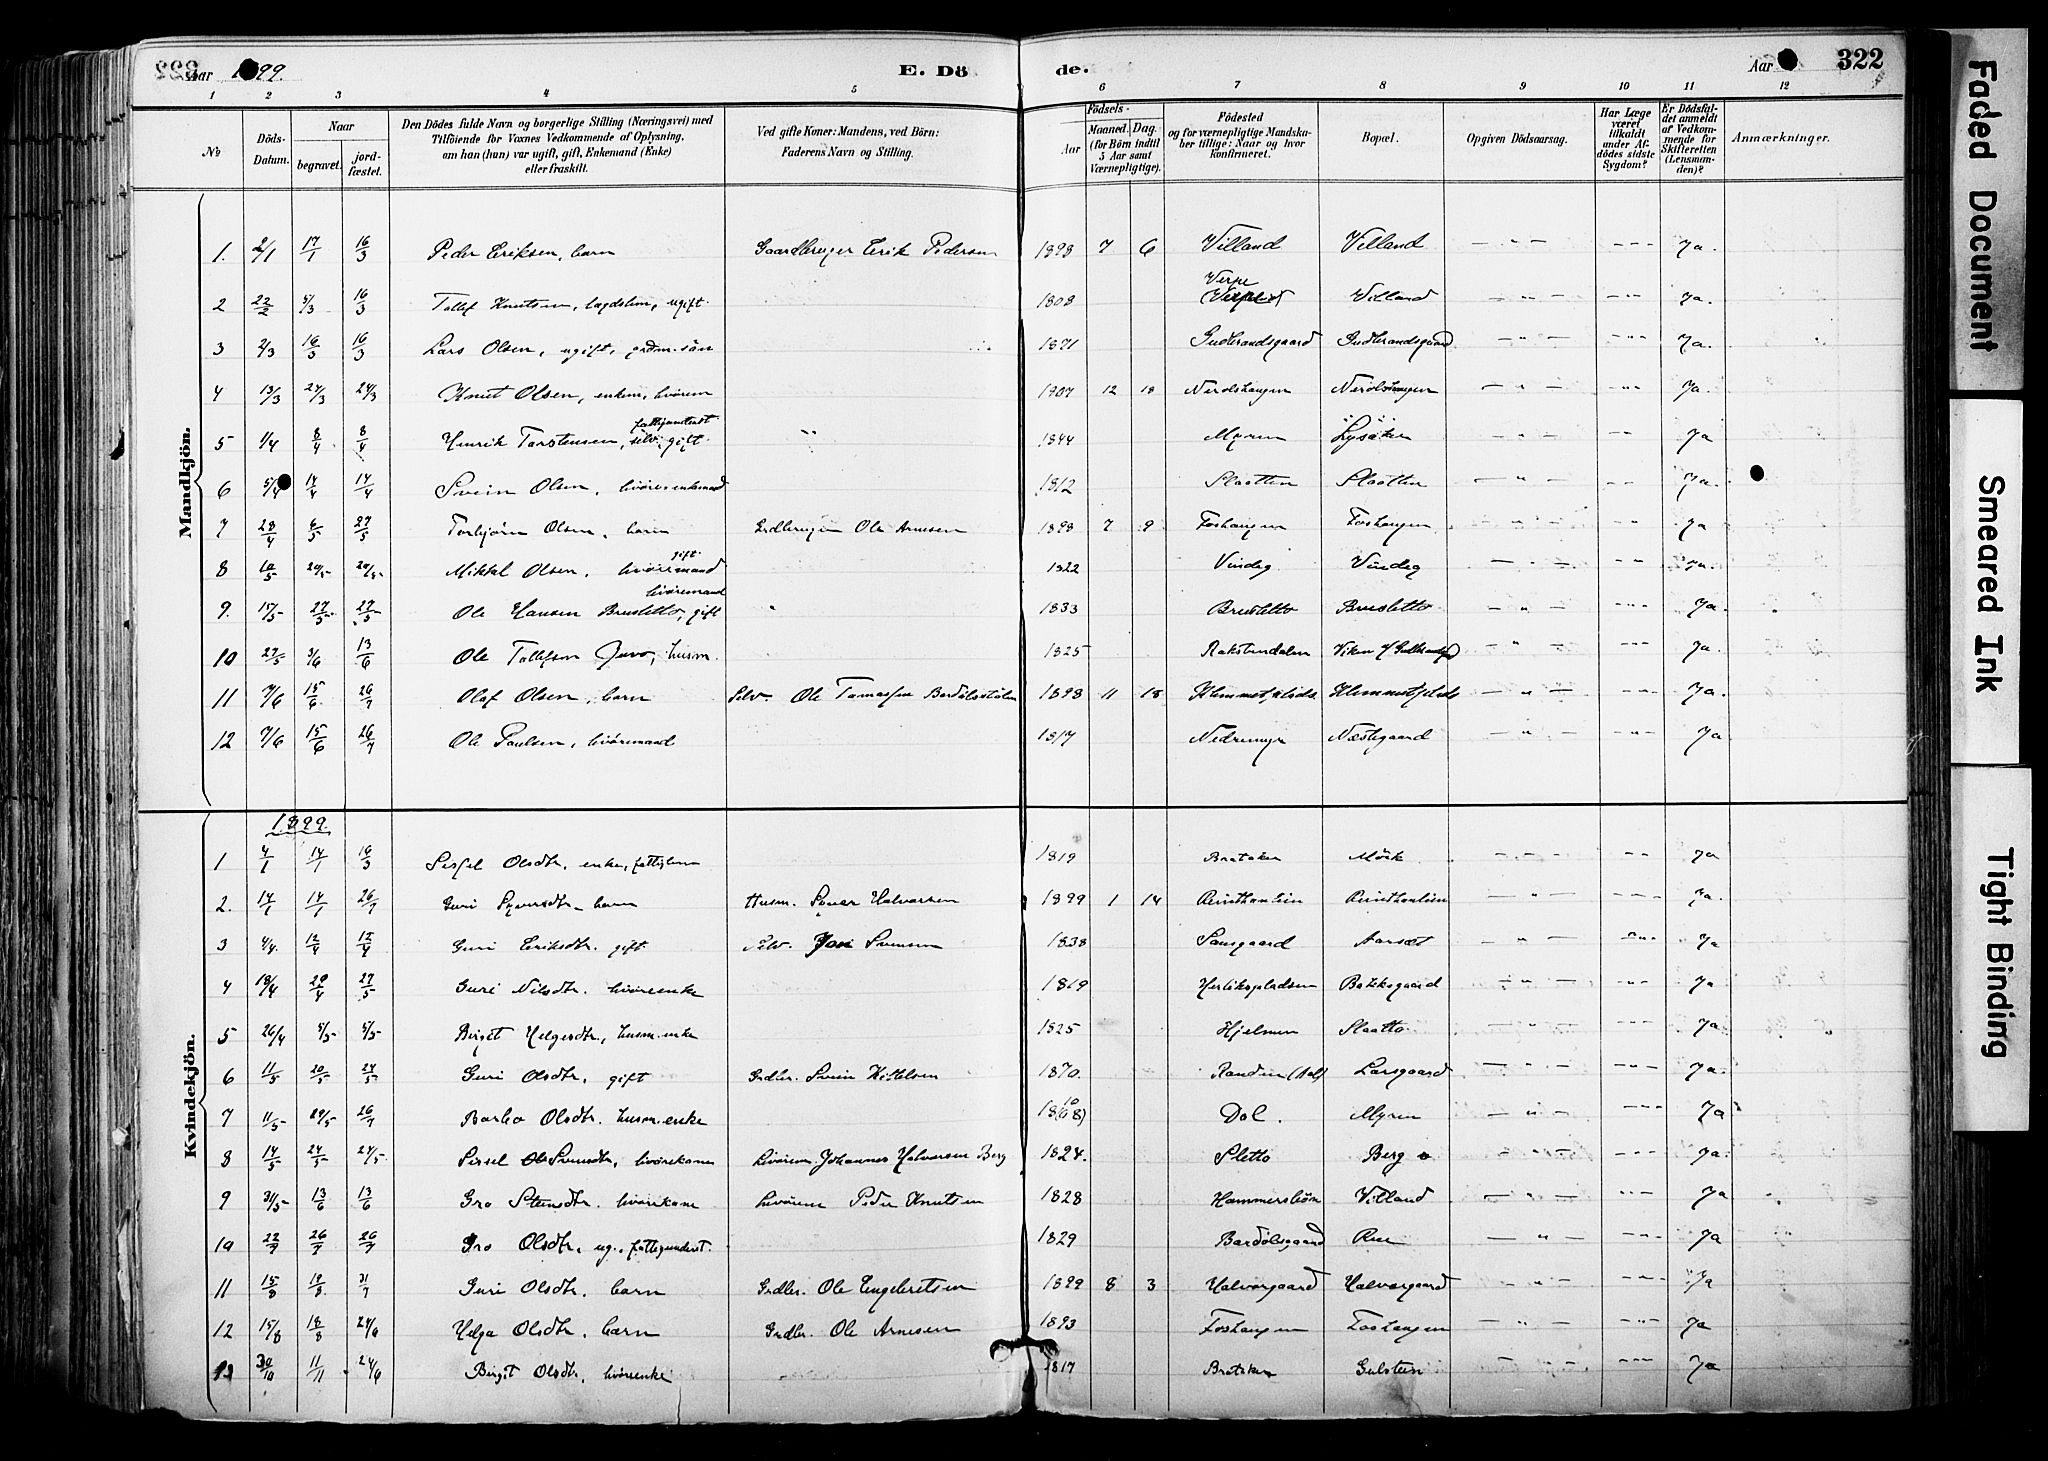 Aar 1899. E. Döde. Aar 322
1 2 3 4 5 6 7 8 9 10 11 12
No Döds-Datum. Naar begravet. jordfæstet. Den Dödes fulde Navn og borgerlige Stilling (Næringsvei) med Tilföiende for Voxnes Vedkommende af Oplysning, om han (hun) var ugift, gift, Enkemand (Enke) eller fraskilt. Ved gifte Koner: Mandens, ved Börn: Faderens Navn og Stilling. Födsels- Aar Maaned. Dag. (for Börn indtil 5 Aar samt Værnepligtige). Födested og for værnepligtige Mandskaber tillige: Naar og hvor konfirmeret. Bopæl. Opgiven Dödsaarsag. Har Læge været tilkaldt under Afdödes sidste Sygdom? Er Dödsfaldet anmeldt af Vedkommende for Skifteretten (Lensmanden)? Anmærkninger.
Mandkjön.
1. 2/1 17/1 16/3 Peder Eriksen, barn Gaardbruger Erik Pedersen 1898 7 6 Villand Villand — " — - " - Ja.
2 22/2 5/3 16/3 Tollef Knutsen, lægdslem, ugift. 1808 Verpe Villand — " — - " - Ja.
3 2/3 16/3 16/3 Lars Olsen, ugift, grdm. sön 1871 Gudbrandsgaard Gudbrandsgaard — " — - " - Ja.
4 13/3 24/3 24/3 Knut Olsen, enkem, livörem 12 18 Nerolshaugen Nerolshaugen — " — - " - Ja.
5 1/4 8/4 8/4 Henrik Torstensen, selv. gift. fattigunderst. 1844 Myren Lysaker — " — - " - Ja
6 5/4 14/4 14/4 Svein Olsen, livöres enkemand 1812 Slaatten Slaatten — " — - " - Ja.
7 28/4 6/5 27/5 Torbjörn Olsen, barn Grdbruger Ole Arnesen 1898 7 9 Foshaugen Foshaugen — " — - " - Ja
8 10/5 20/5 20/5 Mikkel Olsen, livöremand gift. 1822 Vindeg Vindeg — " — - " - Ja.
9. 15/5 27/5 27/5 Ole Hansen Brusletto, gift livöremand 1833 Brusletto Brusletto — " — - " - Ja.
10 27/5 3/6 13/6 Ole Tollefsen Juvo, husm. 1825 Rakstendalen — " — - " - Ja.
11 7/6 15/6 26/7 Olaf Olsen, barn Selv. Ole Tomassen Bardölsstölen 1898 11 18 — " — - " - Ja.
12 7/6 15/6 26/7 Ole Paulsen, livöremand 1817 Nedremyr Næstegaard — " — - " - Ja.
Kvindekjön.
1899.
1 4/1 14/1 16/3 Sissel Olsdtr, enke, fattiglem 1819 Brataker Mörk — " — - " - Ja
2. 14/1 14/1 26/7 Guri Syversdtr. barn Husm. Syver Halvorsen 1899 1 14 — " — - " - Ja.
3 4/4 12/4 12/4 Guri Eriksdtr. gift. Selv. Svensen 1838 Sansgaard Aarset — " — - " - Ja
4 18/4 29/4 27/5 Guri Nilsdtr. livöreenke 1819 Herlikspladsen Bakksgaard — " — - " - Ja
5 26/4 5/5 5/5 Birgit Helgesdtr, husm. enke 1825 Hjelmen Slaatto — " — - " - Ja.
6 11/5 20/5 24/5 Guri Olsdtr, gift Grdbr. Svein Kittelsen 1870. Randen (Aal) Larsgaard — " — - " - Ja.
7 11/5 20/5 26/7 Barbo Olsdtr. husm. enke Dol. Myren — " — - " - Ja
8 14/5 24/5 24/5 Sissel Svensdtr, livörekone Livörem. Johannes Halvorsen Berg 1824. Sletto Berg — " — - " - Ja.
9 31/5 13/6 13/6 Gro Stensdtr. livörekone Livörem Peder Knutsen 1828 Hammersböen Villand — " — - " - Ja
10 22/7 26/7 26/7 Gro Olsdtr, ug., fattigunderst. 1829 Bardölsgaard Rue — " — - " - Ja
11 15/8 19/8 31/7 Guri Olsdtr, barn Grdbr. Ole Engebretsen 1899 8 3 Halvorgaard Halvorgaard — " — - " - Ja
12 15/8 18/8 24/9 Helga Olsdtr, barn Grdbr. Ole Arnesen 1893 Foshaugen Foshaugen — " — - " - Ja
13 30/10 11/11 24/6 Birgit Olsdtr, livöreenke 1817 Brataker Gulsteen — " — - " - Ja
Faded Document
Smeared Ink
Tight Binding